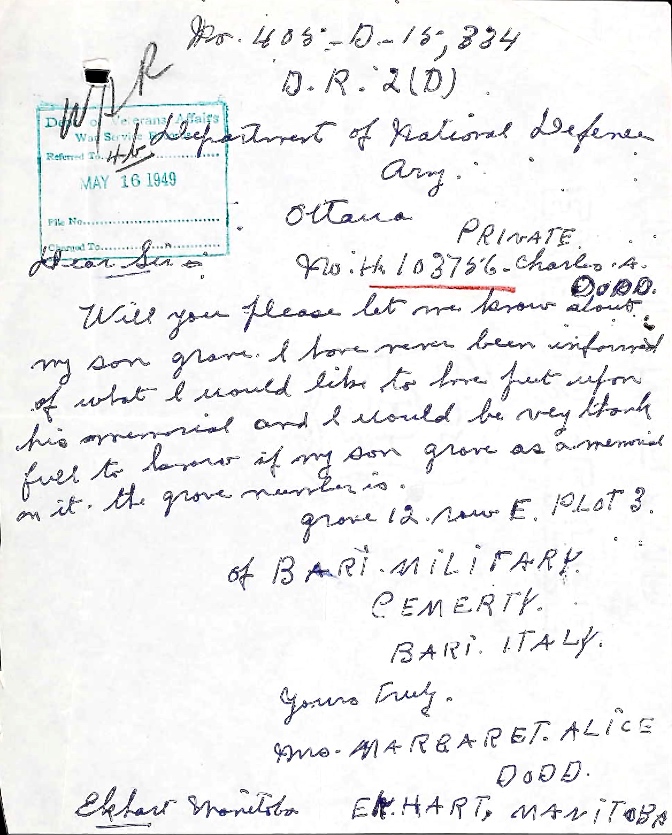 No. 405-D-15,334
D.R. 2(D)
WAR
Dept. of Veterans Affairs
War Service
Referred To 4b
MAY 16 1949
File No.
Charged To
Department of National Defence
Army.
Ottawa
PRIVATE
Dear Sir No. H.103756-Charles. A.
DODD.
Will you please let me know about
my son grave. I have never been informed
of what I would like to have put upon
his memorial and I would be very thank
full to know if my son grave as a memorial
on it. the grave number is.
grave 12. row E. PLOT 3.
of BARI. MILITARY.
CEMERTY.
BARI. ITALY.
Yours Truly.
Mrs. MARGARET. ALICE
DODD.
Ekhart Manitoba EKHART, MANITOBA